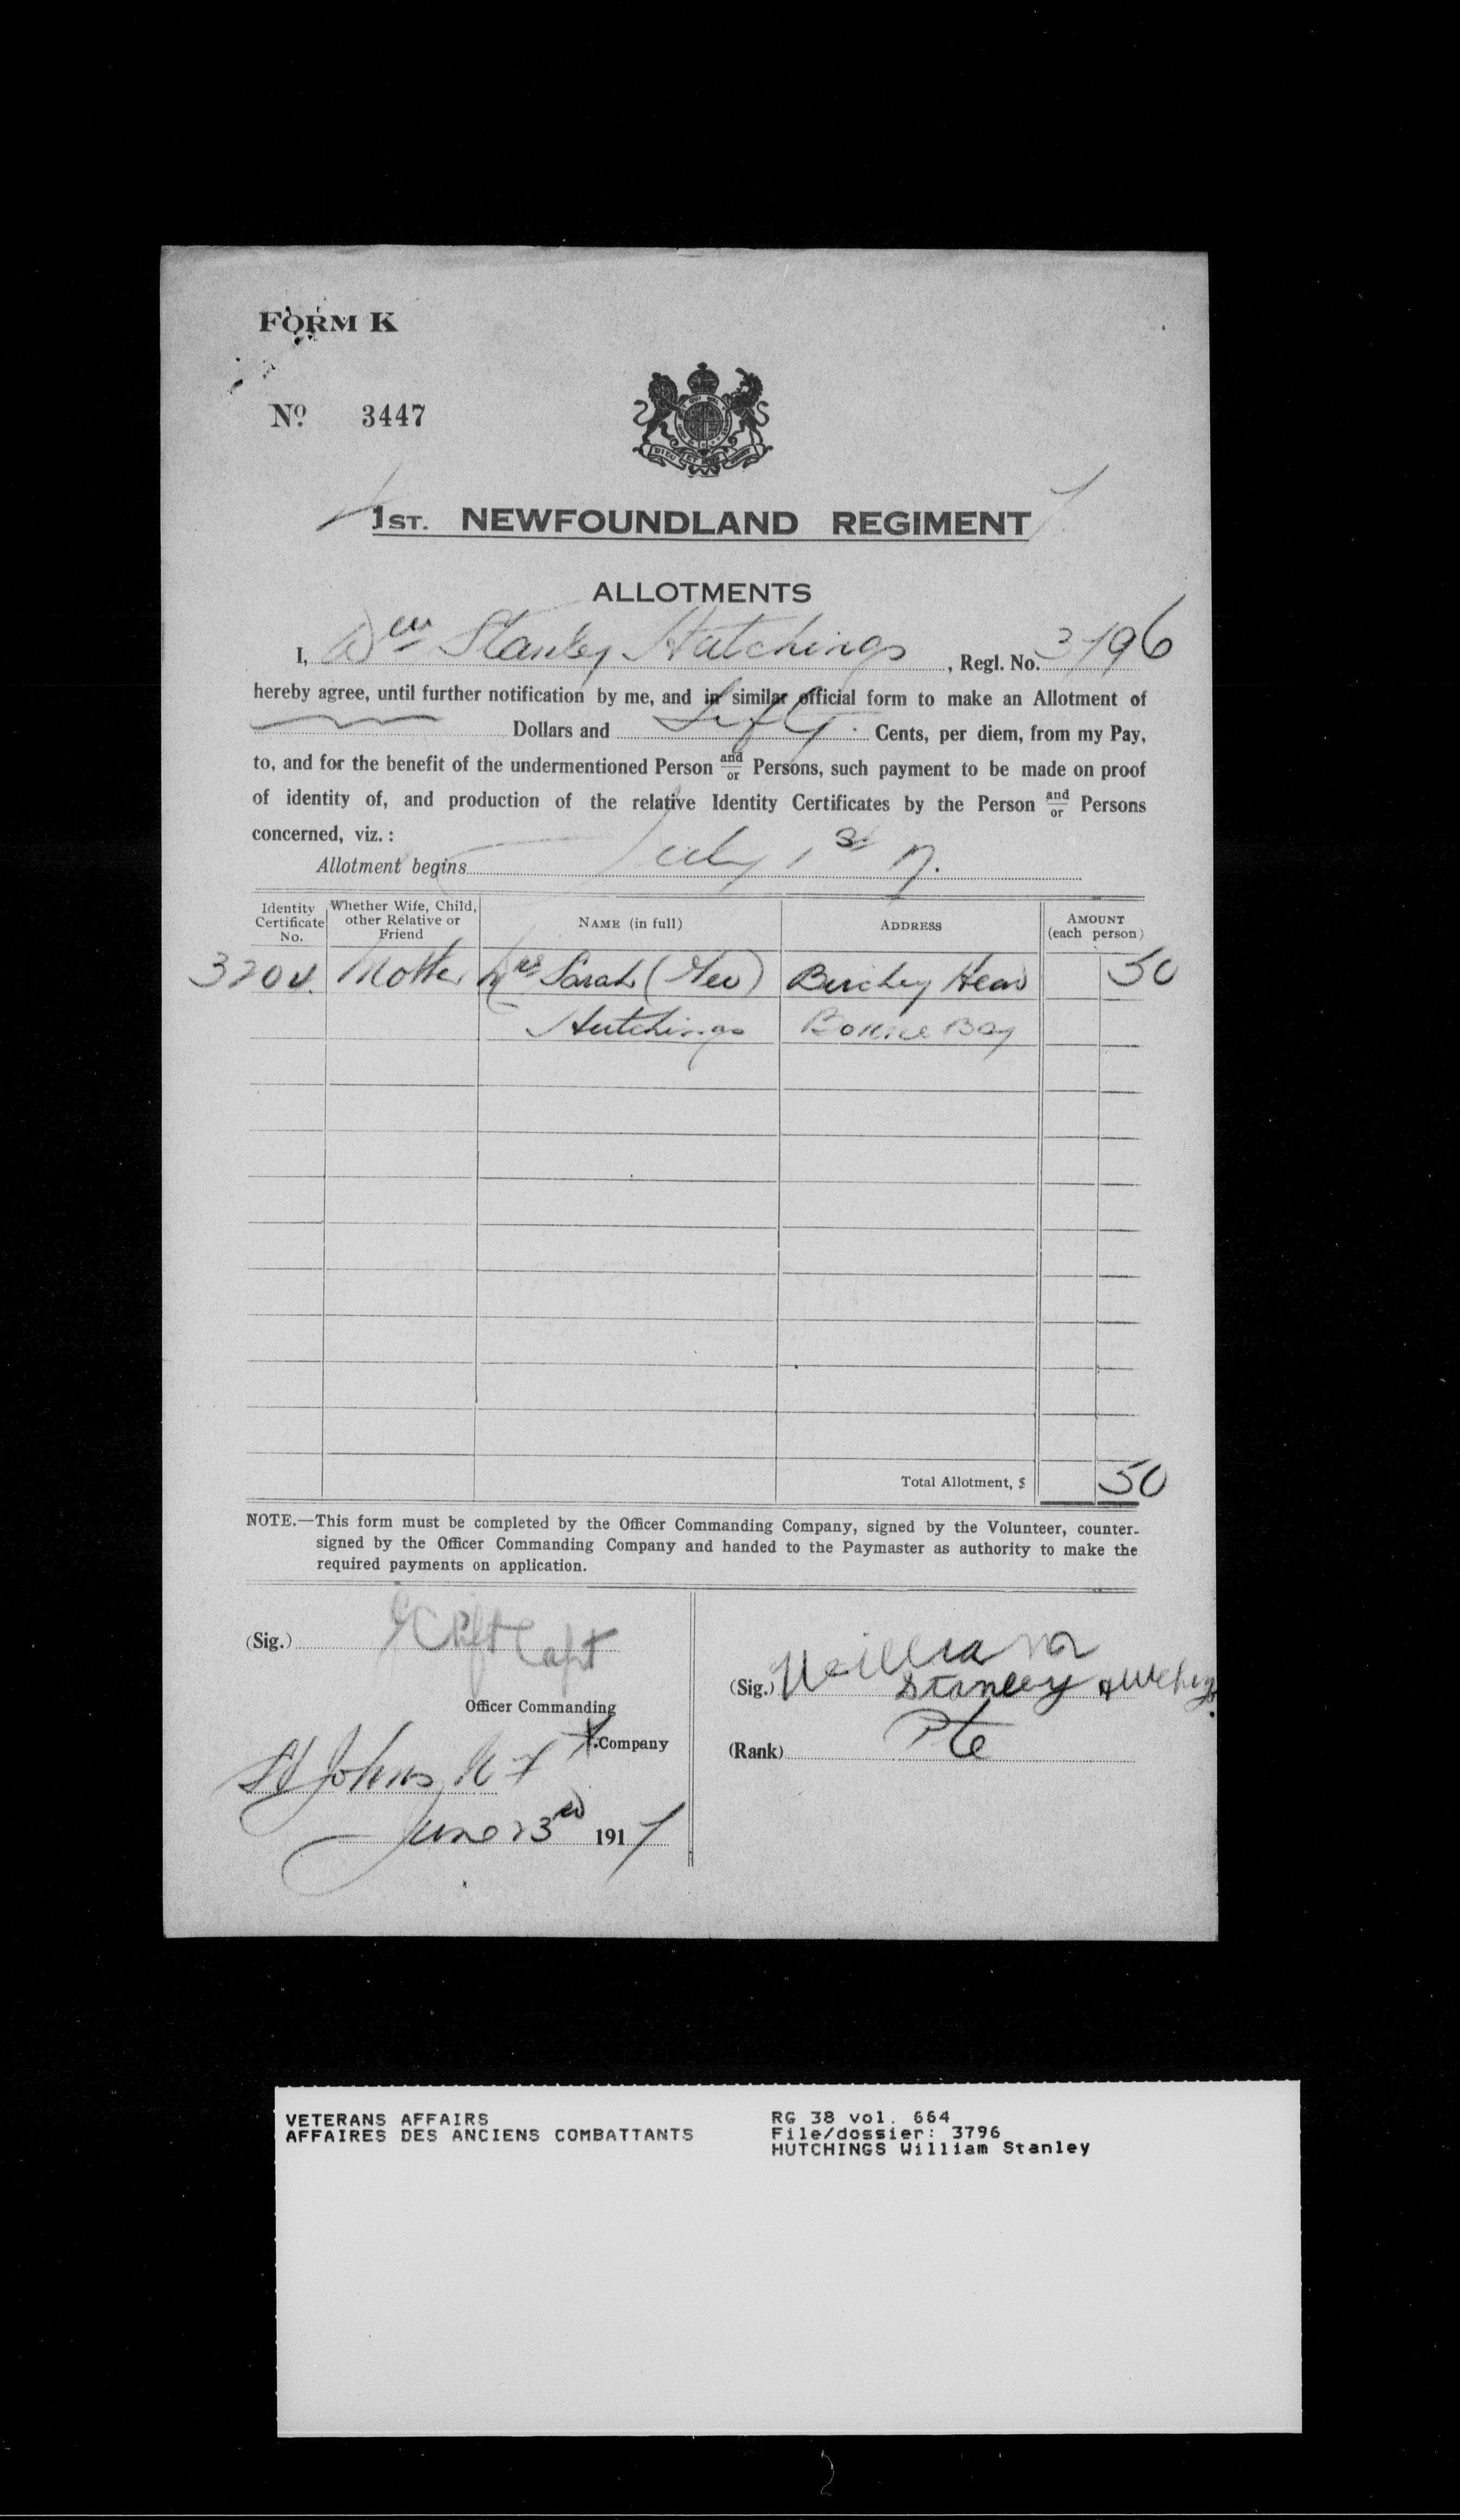 FORM K
No. 3447
DIEU ET MON DROIT
1ST. NEWFOUNDLAND REGIMENT
ALLOTMENTS
I, Wm Stanley Hutchings, Regl. No. 3796
hereby agree, until further notification by me, and in similar official form to make an Allotment of
Dollars and Fifty Cents, per diem, from my Pay,
to, and for the benefit of the undermentioned Person and/or Persons, such payment to be made on proof
of identity of, and production of the relative Identity Certificates by the Person and/or Persons
concerned, viz.:
Allotment begins July 1st 17.
Identity Certificate No. Whether Wife, Child, other Relative or Friend NAME (in full) ADDRESS AMOUNT (each person)
3204 Mother Mrs Sarah (Geo) Birchy Head 50
Hutchings Bonne Bay
Total Allotment, $ 50
NOTE.—This form must be completed by the Officer Commanding Company, signed by the Volunteer, counter-
signed by the Officer Commanding Company and handed to the Paymaster as authority to make the
required payments on application.
(Sig.) Capt
Officer Commanding
Company
St Johns, N F
June 23rd 1917
(Sig.) William
Stanley Hutchings
(Rank) Pte
VETERANS AFFAIRS
AFFAIRES DES ANCIENS COMBATTANTS
RG 38 vol. 664
File/dossier: 3796
HUTCHINGS William Stanley
2